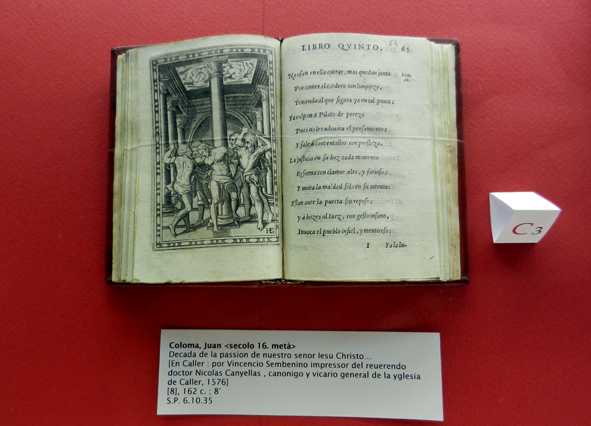 LIBRO QVINTO, 65
No osan en ella entrar; mas quedan junto
Por comer el cordero con limpieza,
Teniendo al que figura ya en tal punto;
Ya culpan à Pilato de pereza
Pues no les adeuina el pensamiento;
Y sale à contentallos con presteza.
La justicia en su boz cada momento
Resuena con clamor alto, y furioso;
Y mora la maldad solo en su intento;
Estan ante la puerta sin reposo;
Y à bozes al juez, con gesto insano,
Inuoca el pueblo infiel, y mentiroso:
I Ya la
HC
C3
Coloma, Juan <secolo 16. metà>
Decada de la passion de nuestro senor Iesu Christo...
[En Caller : por Vincencio Sembenino impressor del reuerendo
doctor Nicolas Canyellas , canonigo y vicario general de la yglesia
de Caller, 1576]
[8], 162 c. ; 8°
S.P. 6.10.35